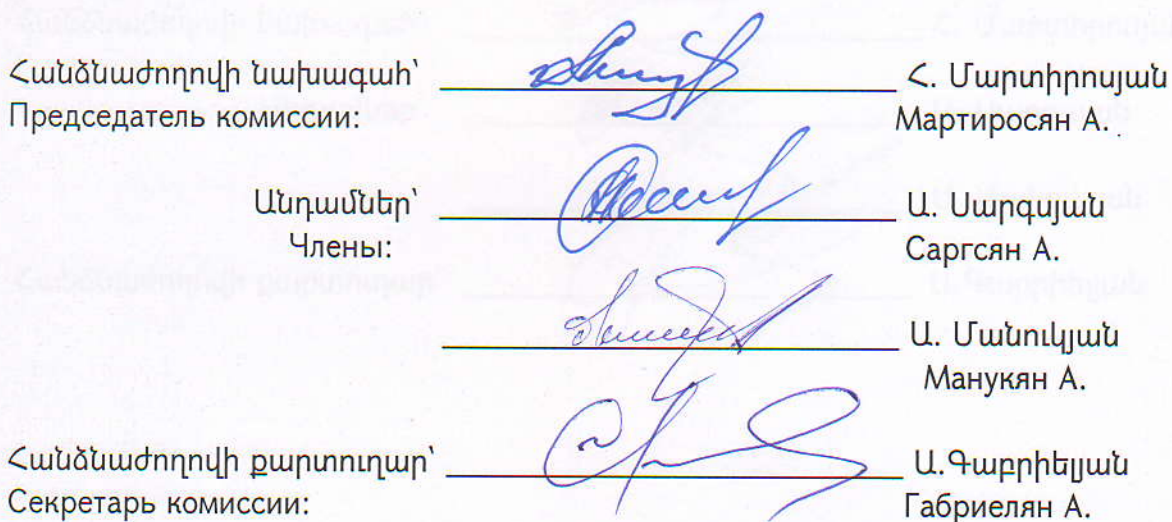 Հանձնաժողովի նախագահ՝ Հ. Մարտիրոսյան
Председатель комиссии: Мартиросян А.
Անդամներ՝ Ա. Սարգսյան
Члены: Саргсян А.
Ա. Մանուկյան
Манукян А.
Հանձնաժողովի քարտուղար՝ Ա.Գաբրիելյան
Секретарь комиссии: Габриелян А.